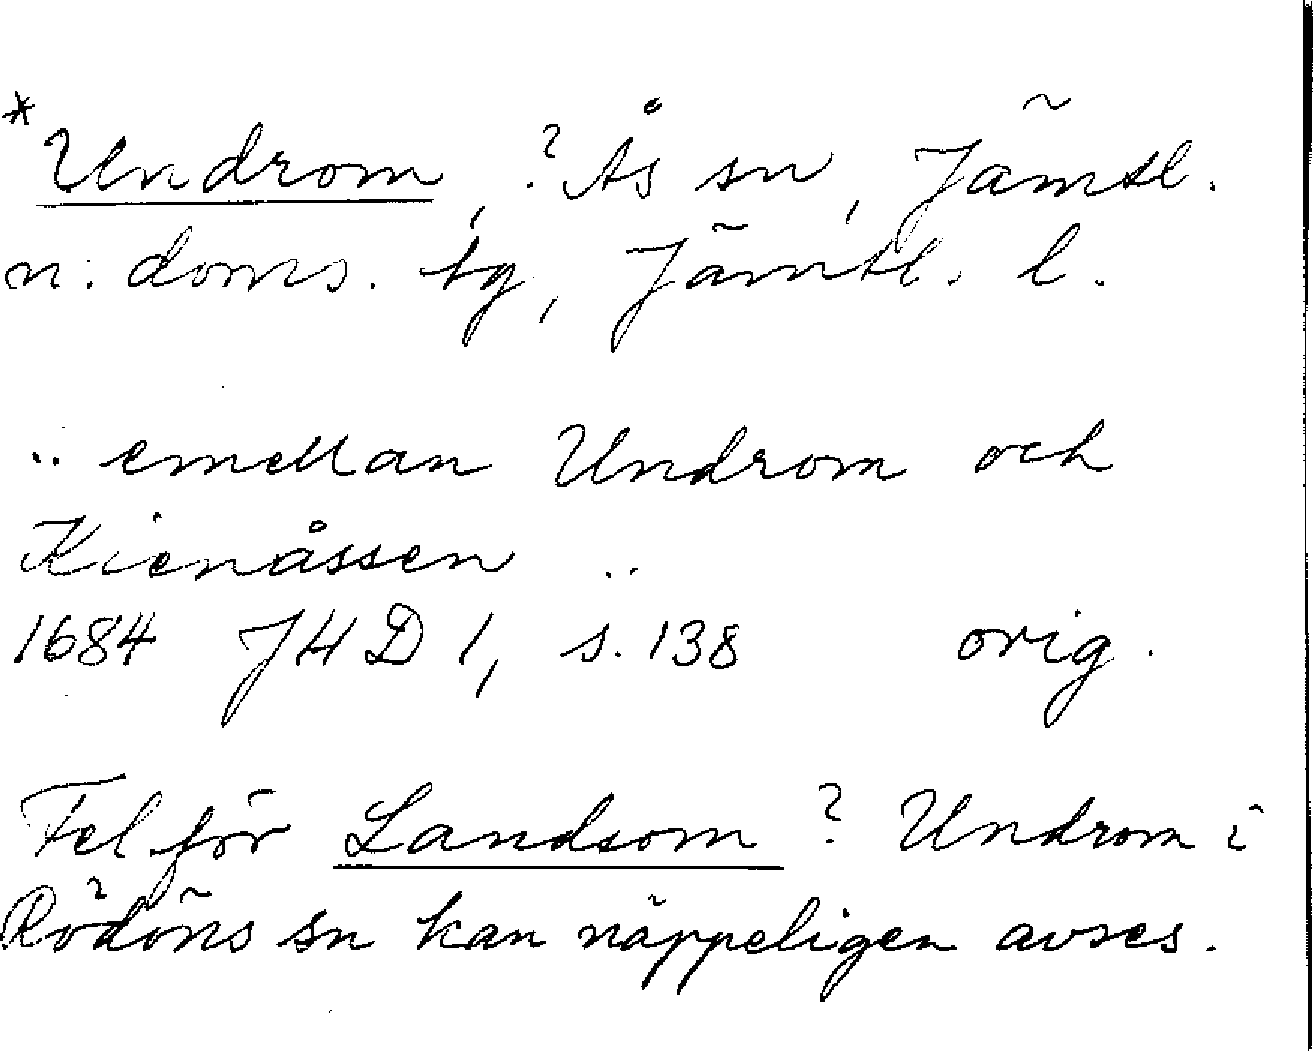 *Undrom, ?Ås sn, Jämtl.
n. doms. tg, Jämtl. l.
.. emellan Undrom och
Kienåssen ..
1684 JHD 1, s. 138 orig.
Fel för Landsom? Undrom i
Rödöns sn kan näppeligen avses.